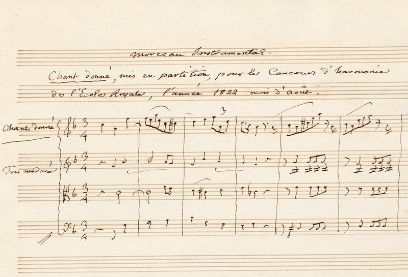 Morceau Instrumental.
Chant donné, mis en partition, pour le Concours d'harmonie
de l'Ecole Royale, l'année 1822 mois d'août.
Chant donné
3